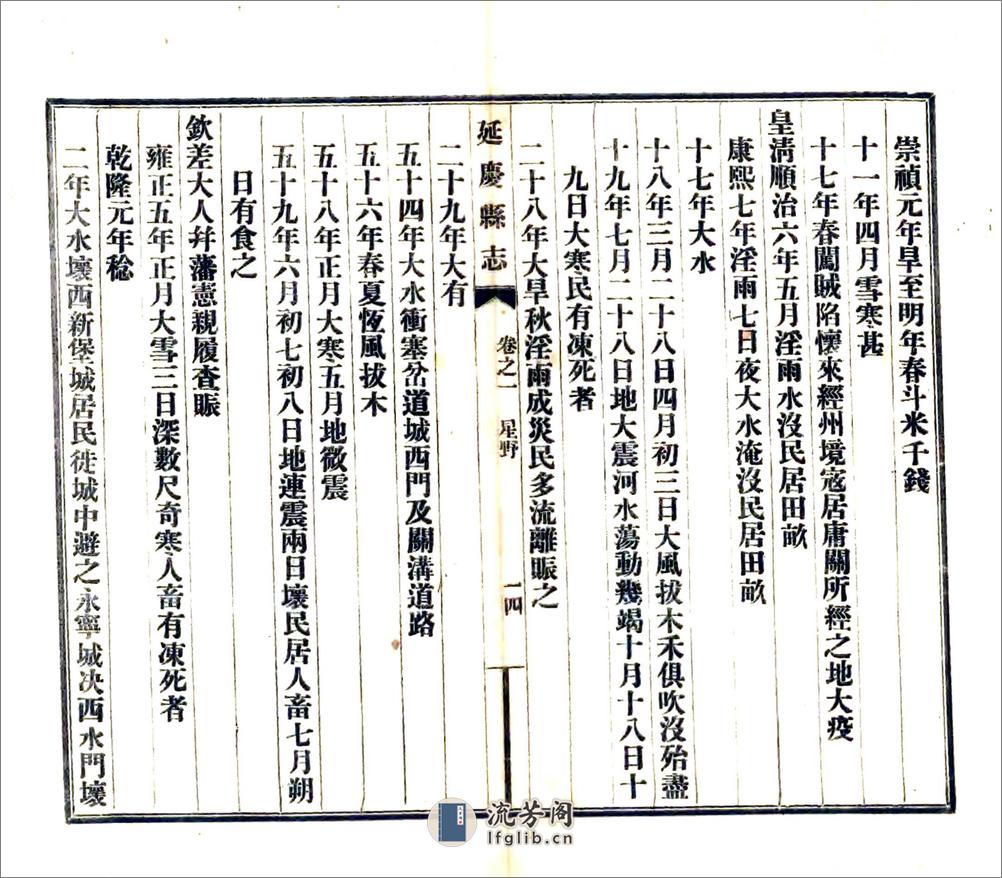 崇禎元年旱至明年春斗米千錢
十一年四月雪寒甚
十七年春闖賊陷懷來經州境寇居庸關所經之地大疫
皇清順治六年五月淫雨水沒民居田畝
康熙七年淫雨七日夜大水淹沒民居田畝
十七年大水
十八年三月二十八日四月初三日大風拔木禾俱吹沒殆盡
十九年七月二十八日地大震河水蕩動幾竭十月十八日十
九日大寒民有凍死者
二十八年大旱秋淫雨成災民多流離賑之
延慶縣志
卷之一 星野
一四
二十九年大有
五十四年大水衝塞岔道城西門及關溝道路
五十六年春夏恆風拔木
五十八年正月大寒五月地微震
五十九年六月初七初八日地連震兩日壞民居人畜七月朔
日有食之
欽差大人幷藩憲親履查賑
雍正五年正月大雪三日深數尺奇寒人畜有凍死者
乾隆元年稔
二年大水壞西新堡城居民徙城中避之永寧城決西水門壞
流芳阁
lfglib.cn